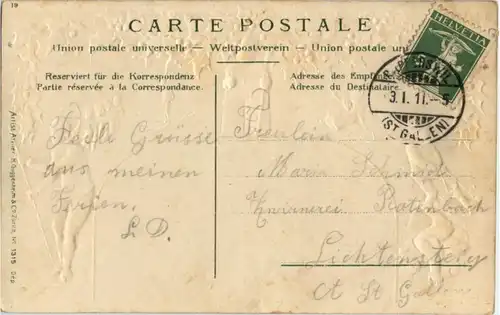 19
CARTE POSTALE
Union postale universelle — Weltpostverein — Union postale uni
Reserviert für die Korrespondenz
Partie réservée à la Correspondance.
Adresse des Empfäng
Adresse du Destinataire.
HELVETIA
3.I.11.-5
(ST GALLEN)
Grüsse
aus meinen
Ferien.
L.D.
Fräulein
Maria Schmid
Zwirnerei
Lichtensteig
Ct St Gallen